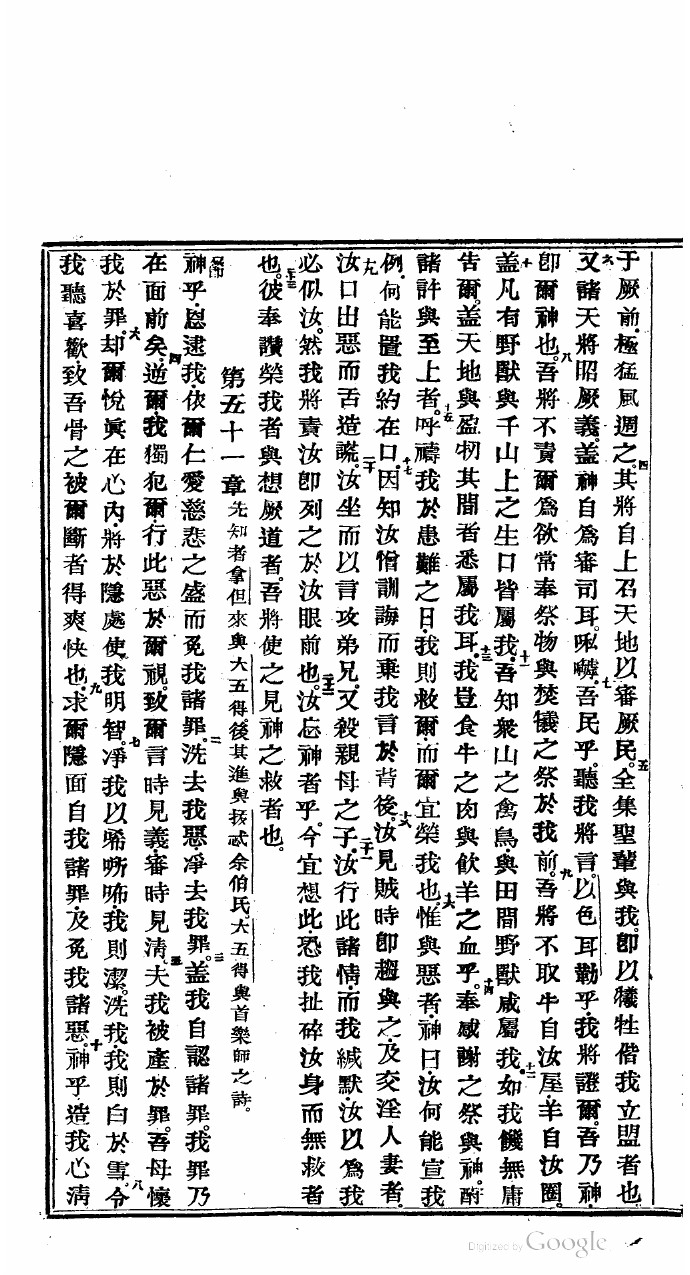 于厥前．極猛風週之。四其將自上召天地以審厥民。五全集聖輩與我．卽以犧牲偕我立盟者也
六又諸天將昭厥義。蓋神自爲審司耳。㗭𠿕。七吾民乎．聽我將言。以色耳勒乎．我將證爾。吾乃神．
卽爾神也。八吾將不責爾爲欲常奉祭物與焚犧之祭於我前。九吾將不取牛自汝屋．羊自汝圈。
十蓋凡有野獸與千山上之生口皆屬我。十一吾知衆山之禽鳥．與田間野獸咸屬我。十二如我饑無庸
告爾．蓋天地與盈牣其間者悉屬我耳。十三我豈食牛之肉與飲羊之血乎。十四奉感謝之祭與神．酧
諸許與至上者。十五呼禱我於患難之日．我則救爾．而爾宜榮我也。十六惟與惡者．神曰．汝何能宣我
例．何能置我約在口。十七因知汝憎訓誨而棄我言於背後。十八汝見賊時卽趨與之．及交淫人妻者。
十九汝口出惡而舌造謊。二十汝坐而以言攻弟兄．又殺親母之子。二十一汝行此諸情．而我緘默．汝以爲我
必似汝。然我將責汝卽列之於汝眼前也。二十二汝忘神者乎．今宜想此．恐我扯碎汝身而無救者
也。二十三彼奉讚榮我者．與想厥道者。吾將使之見神之救者也。
第五十一章 先知者拿但來與大五得。後其進與撥忒佘伯氏。大五得與首樂師之詩。
一節神乎．恩逮我．依爾仁愛慈悲之盛而免我諸罪。二洗去我惡．凈去我罪。三蓋我自認諸罪。我罪乃
在面前矣。四逆爾．我獨犯爾．行此惡於爾視。致爾言時見義．審時見清。五夫我被產於罪。吾母懷
我於罪。六却爾悅眞在心內．將於隱處使我明智。七凈我以唏㖿咘．我則潔。洗我我則白於雪。八令
我聽喜歡．致吾骨之被爾斷者得爽快也。九求爾隱面自我諸罪．及免我諸惡。十神乎．造我心清
Digitized by Google